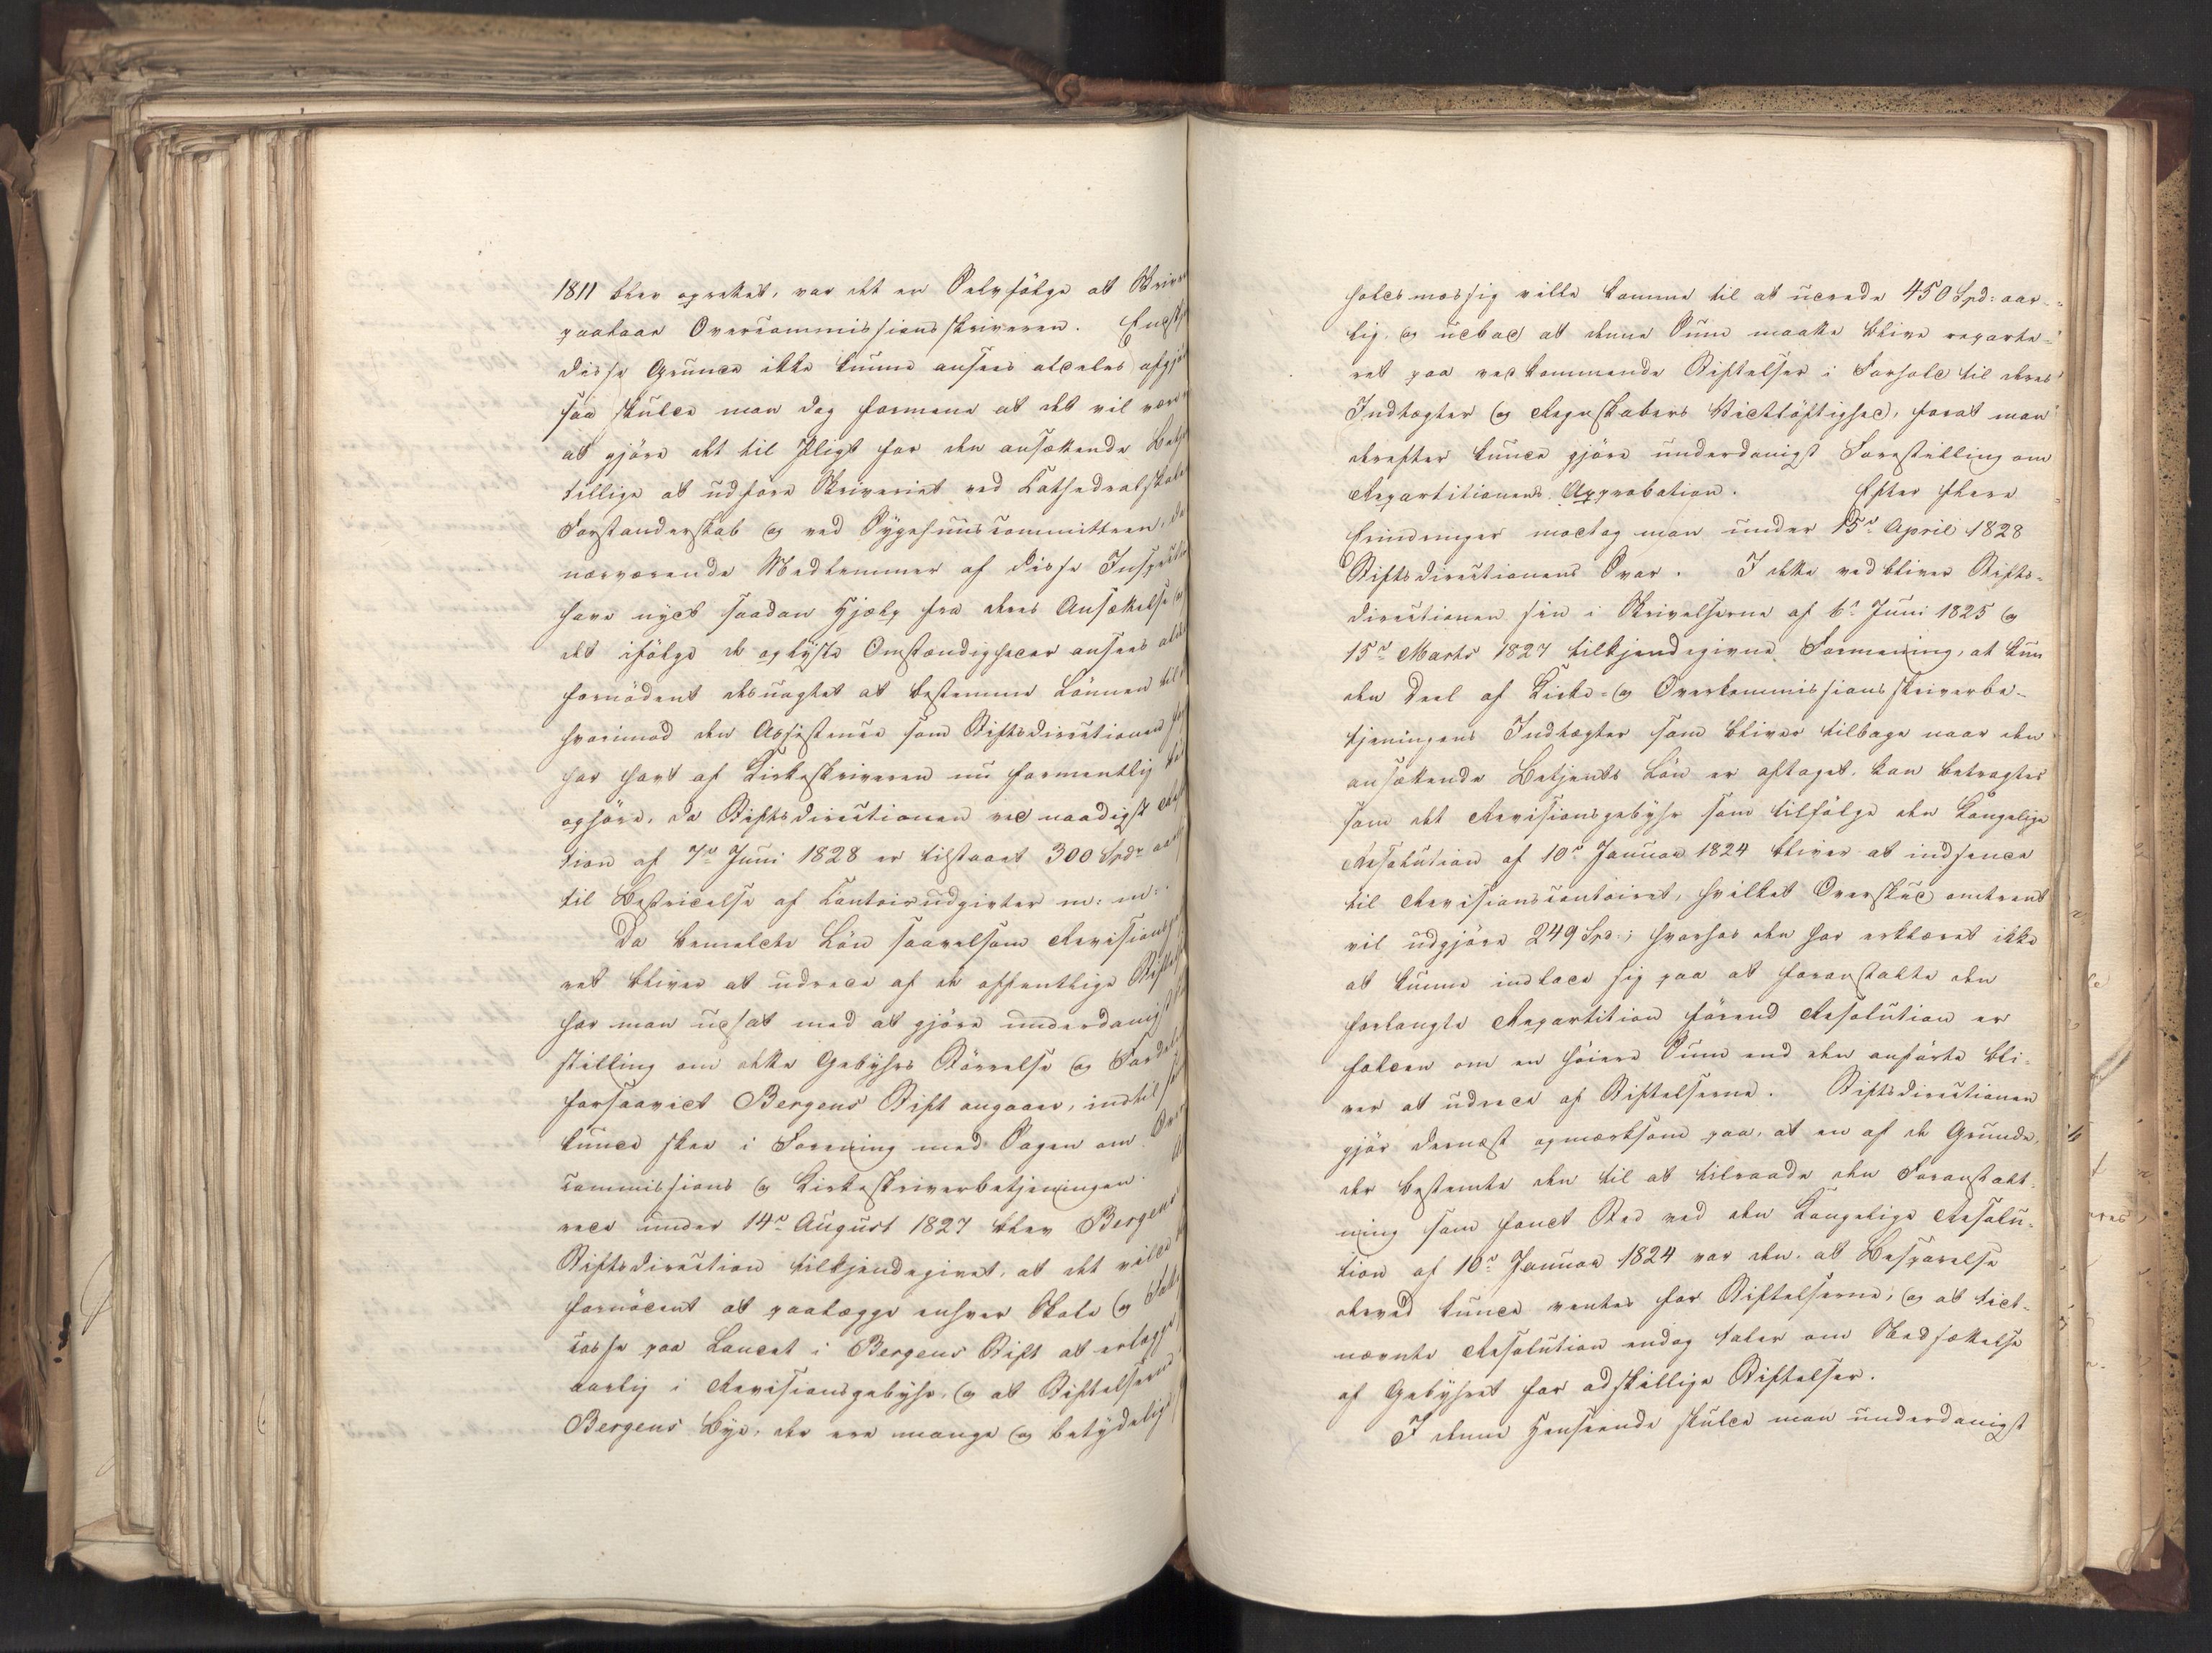 1811 blev oprettet, var det en Selvfölge at Skrive
paalaae Overcommissionsskriveren. Endskj
disse Grunde ikke kunne ansees aldeles afgjö
saa skulde man dog formene at det vil være
at gjöre det til Pligt for den ansættende Betj
tillige at udföre Skriveriet ved Cathedralskole
Forstanderskab og ved Sygehuuscommitteen, da
nærværende Medlemmer af disse Inspecti
have nydt saadan Hjælp fra deres Ansættelse og
det ifölge de oplyste Omstændigheder ansees alde
fornödent desuagtet at bestemme Lönnen til
hvorimod den Assistence som Stiftsdirectionen
har havt af Kirkeskriveren nu formentlig bö
ophöre, da Stiftsdirectionen ved naadigst Reso
tion af 7de Juni 1828 er tilstaaet 300 Spdr aarl
til Bestridelse af Contoirudgivter m: m:.
Da bemeldte Lön saavelsom Revisionsge
ret bliver at udrede af de offentlige Stiftel
har man udsat med at gjöre underdanigst
stilling om dette Gebyhrs Störrelse og Fordel
forsaavidt Bergens Stift angaaer, indtil
kunde skee i Forening med Sagen om Over
commissions og Kirkeskriverbetjeningen.
rede under 14de August 1827 blev Bergens
Stiftsdirection tilkjendegivet, at det vilde
fornödent at paalægge enhver Skole og Fatt
casse paa Landet i Bergens Stift at erlægge
aarlig i Revisionsgebyhr, og at Stiftelserne
Bergens Bye, der ere mange og betydelige
holdsmæssig ville komme til at udrede 450 Spd: aar-
lig, og udbad at denne Sum maatte blive reparte-
ret paa vedkommende Stiftelser i Forhold til deres
Indtægter og Regnskabers Vidtlöftighed, forat man
derefter kunde gjöre underdanigst Forestilling om
Repartitionens Approbation. Efter flere
Erindringer modtog man under 15de April 1828
Stiftsdirectionens Svar. I dette vedbliver Stifts-
directionen sin i Skrivelserne af 6te Juni 1825 og
15de Marts 1827 tilkjendegivne Formening, at kun
den Deel af Kirke- og Overkommissionsskriverbe-
tjeningens Indtægter som bliver tilbage naar den
ansættende Betjents Lön er aftaget, kan betragtes
som det Revisionsgebyhr som tilfölge den Kongelige
Resolution af 10de Januar 1824 bliver at indsende
til Revisionscontoiret, hvilket Overskud omtrent
vil udgjöre 249 Spd.; hvorhos den har erklæret ikke
at kunne indlade sig paa at foranstalte den
forlangte Repartition förend Resolution er
falden om en höiere Sum end den anförte bli-
ver at udrede af Stiftelserne. Stiftsdirectionen
gjör dernæst opmærksom paa, at en af de Grunde,
der bestemte den til at tilraade den Foranstalt-
ning som fandt Sted ved den Kongelige Resolu-
tion af 10de Januar 1824 var den, at Besparelse
derved kunde ventes for Stiftelserne; og at sidst-
nævnte Resolution endog taler om Nedsættelse
af Gebyhret for adskillige Stiftelser.
I denne Henseende skulde man underdanigst